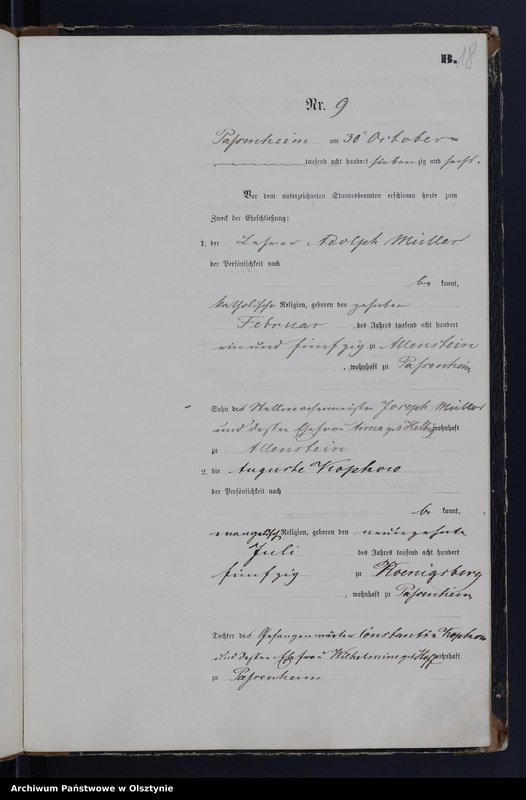 B. 18
Nr. 9
Passenheim am 30 October
tausend acht hundert siebenzig und sechs.
Vor dem unterzeichneten Standesbeamten erschienen heute zum
Zweck der Eheschließung:
1. der Lehrer Adolph Müller
der Persönlichkeit nach
be kannt,
katholischer Religion, geboren den zehnten
Februar des Jahres tausend acht hundert
ein und fünfzig zu Allenstein
, wohnhaft zu Passenheim
Sohn des Stellmachermeister Joseph Müller
und dessen Ehefrau Anna geb wohnhaft
zu Allenstein
2. die Auguste Kophow
der Persönlichkeit nach
be kannt,
evangelisch Religion, geboren den neunzehnten
Juli des Jahres tausend acht hundert
fünfzig zu Koenigsberg
, wohnhaft zu Passenheim
Tochter des Gefangenwärter Constantin Kophow
und dessen Ehefrau Wilhelmine geb wohnhaft
zu Passenheim
Archiwum Państwowe w Olsztynie